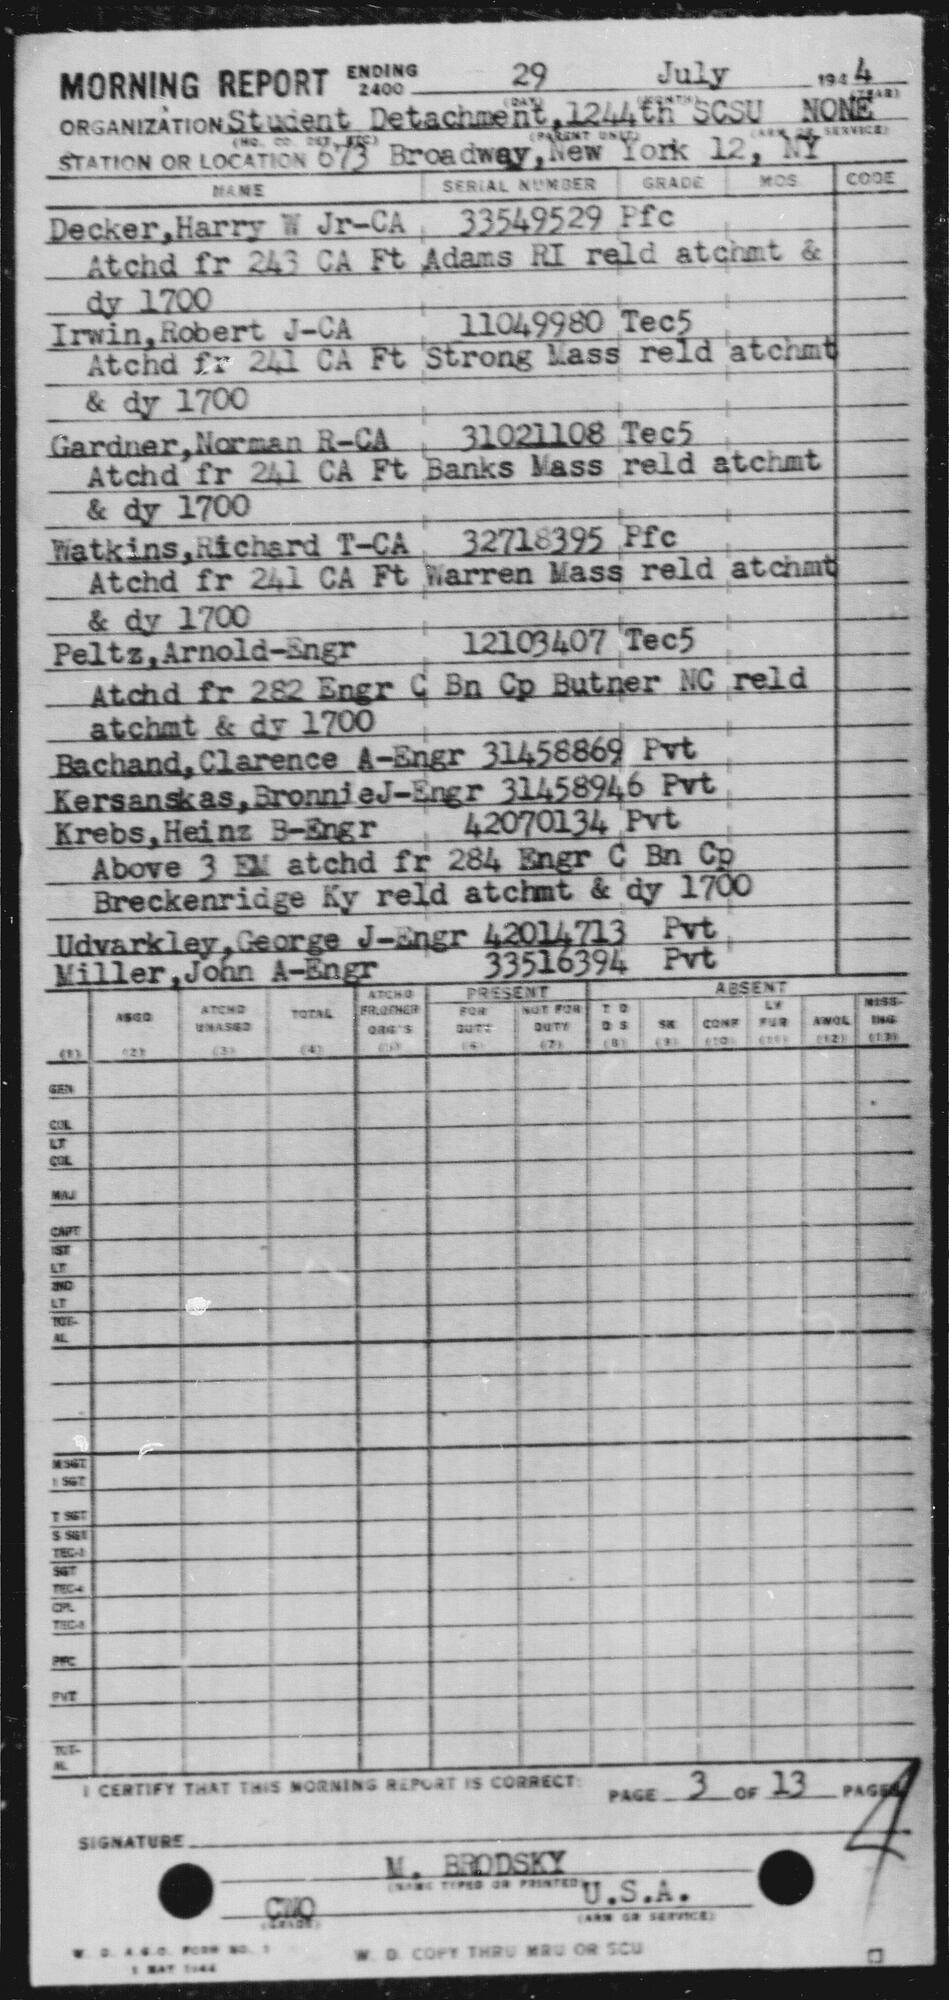 MORNING REPORT ENDING 2400 29 July 1944
(DAY) (MONTH) (YEAR)
ORGANIZATION Student Detachment, 1244th SCSU NONE
(HQ. CO. DET. ETC) (PARENT UNIT) (ARM OR SERVICE)
STATION OR LOCATION 673 Broadway, New York 12, NY
NAME SERIAL NUMBER GRADE MOS CODE
Decker, Harry W Jr-CA 33549529 Pfc
Atchd fr 243 CA Ft Adams RI reld atchmt &
dy 1700
Irwin, Robert J-CA 11049980 Tec5
Atchd fr 241 CA Ft Strong Mass reld atchmt
& dy 1700
Gardner, Norman R-CA 31021108 Tec5
Atchd fr 241 CA Ft Banks Mass reld atchmt
& dy 1700
Watkins, Richard T-CA 32718395 Pfc
Atchd fr 241 CA Ft Warren Mass reld atchmt
& dy 1700
Peltz, Arnold-Engr 12103407 Tec5
Atchd fr 282 Engr C Bn Cp Butner NC reld
atchmt & dy 1700
Bachand, Clarence A-Engr 31458869 Pvt
Kersanskas, BronnieJ-Engr 31458946 Pvt
Krebs, Heinz B-Engr 42070134 Pvt
Above 3 EM atchd fr 284 Engr C Bn Cp
Breckenridge Ky reld atchmt & dy 1700
Udvarkley, George J-Engr 42014713 Pvt
Miller, John A-Engr 33516394 Pvt
PRESENT ABSENT
ASGD ATCHD UNASGD TOTAL ATCHD FR.OTHER ORG'S FOR DUTY NOT FOR DUTY T D D S SK CONF LV FUR AWOL MISSING
(1) (2) (3) (4) (5) (6) (7) (8) (9) (10) (11) (12) (13)
GEN
COL
LT COL
MAJ
CAPT
1ST LT
2ND LT
TOT-AL
M SGT
1 SGT
T SGT
S SGT
TEC-3
SGT
TEC-4
CPL
TEC-5
PFC
PVT
TOT-AL
I CERTIFY THAT THIS MORNING REPORT IS CORRECT: PAGE 3 OF 13 PAGES
4
SIGNATURE
M. BRODSKY
(NAME TYPED OR PRINTED)
CWO U.S.A.
(GRADE) (ARM OR SERVICE)
W. D. A.G.O. FORM NO. 1
1 MAY 1944
W. D. COPY THRU MRU OR SCU